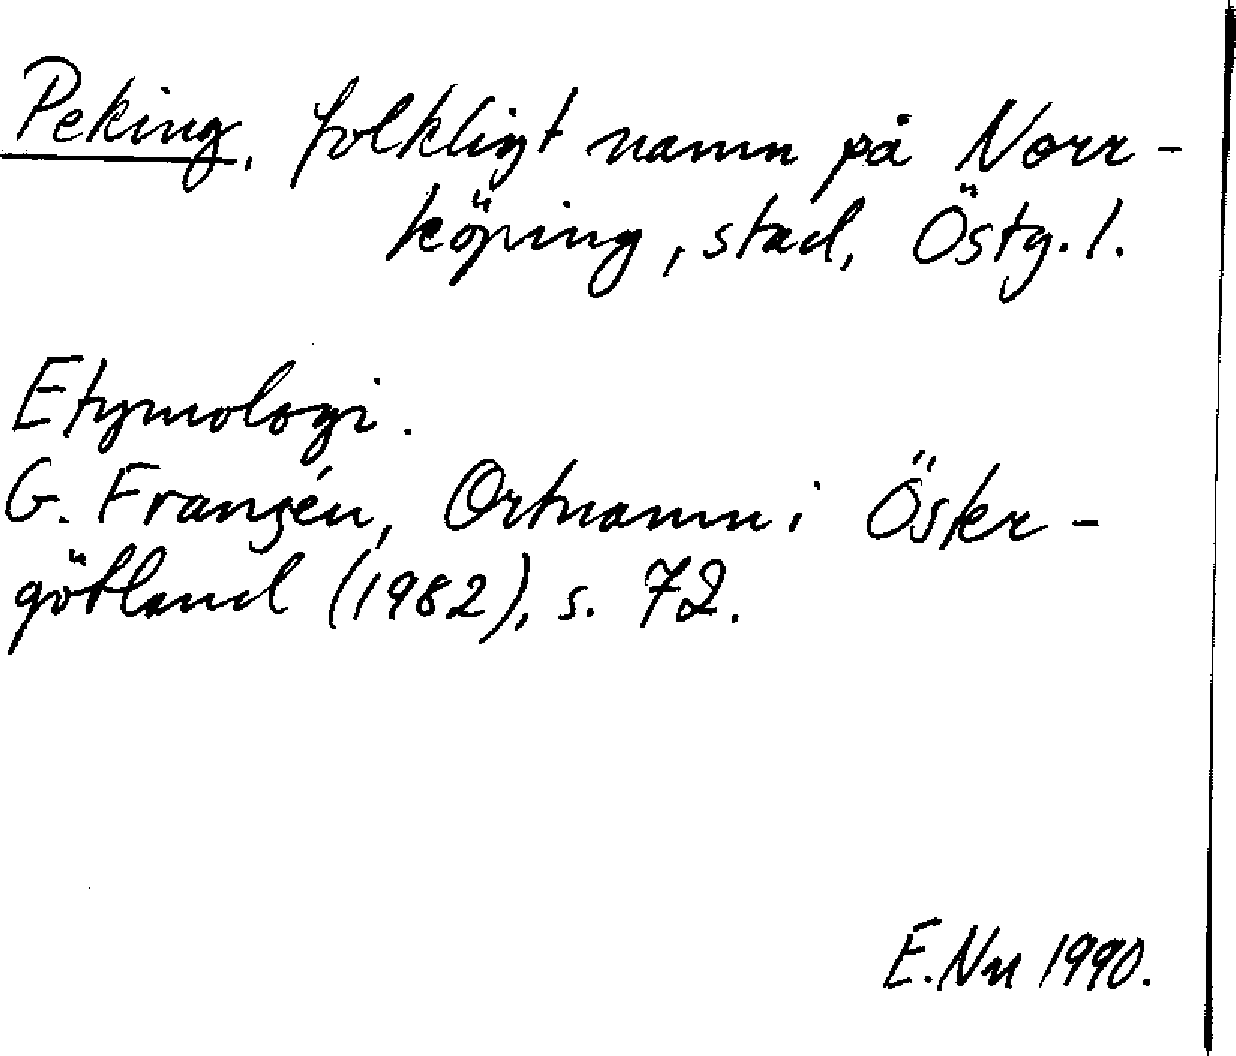 Peking, folkligt namn på Norr-
köping, stad, Östg. l.
Etymologi.
G. Franzén, Ortnamn i Öster-
götland (1982), s. 72.
E. Nn 1990.